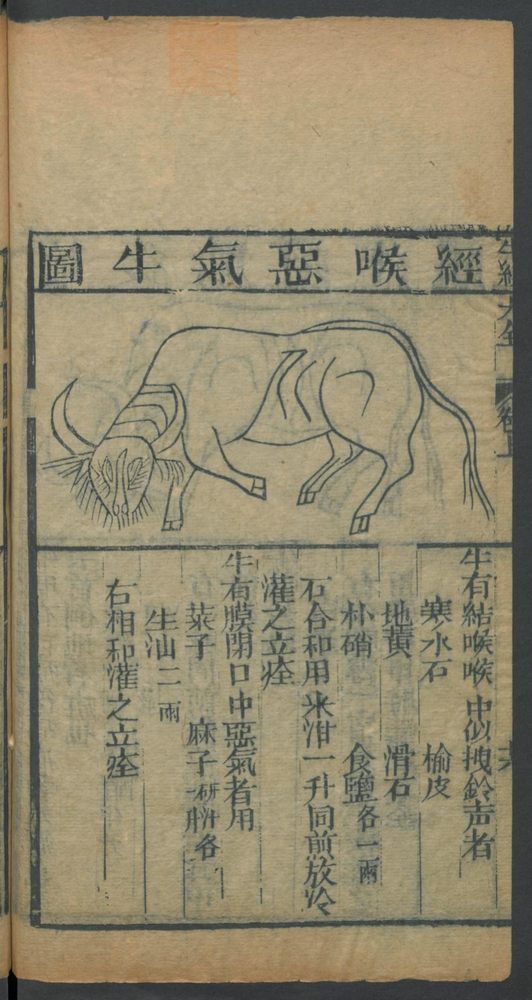 經喉惡氣牛圖
牛有結喉喉中似拽鈴声者
寒水石 榆皮
地黄 滑石
朴硝 食鹽各一兩
右合和用米泔一升同煎放冷
灌之立痊
牛有膜閉口中惡氣者用
菜子 麻子研汁各一升
生油二兩
右相和灌之立痊